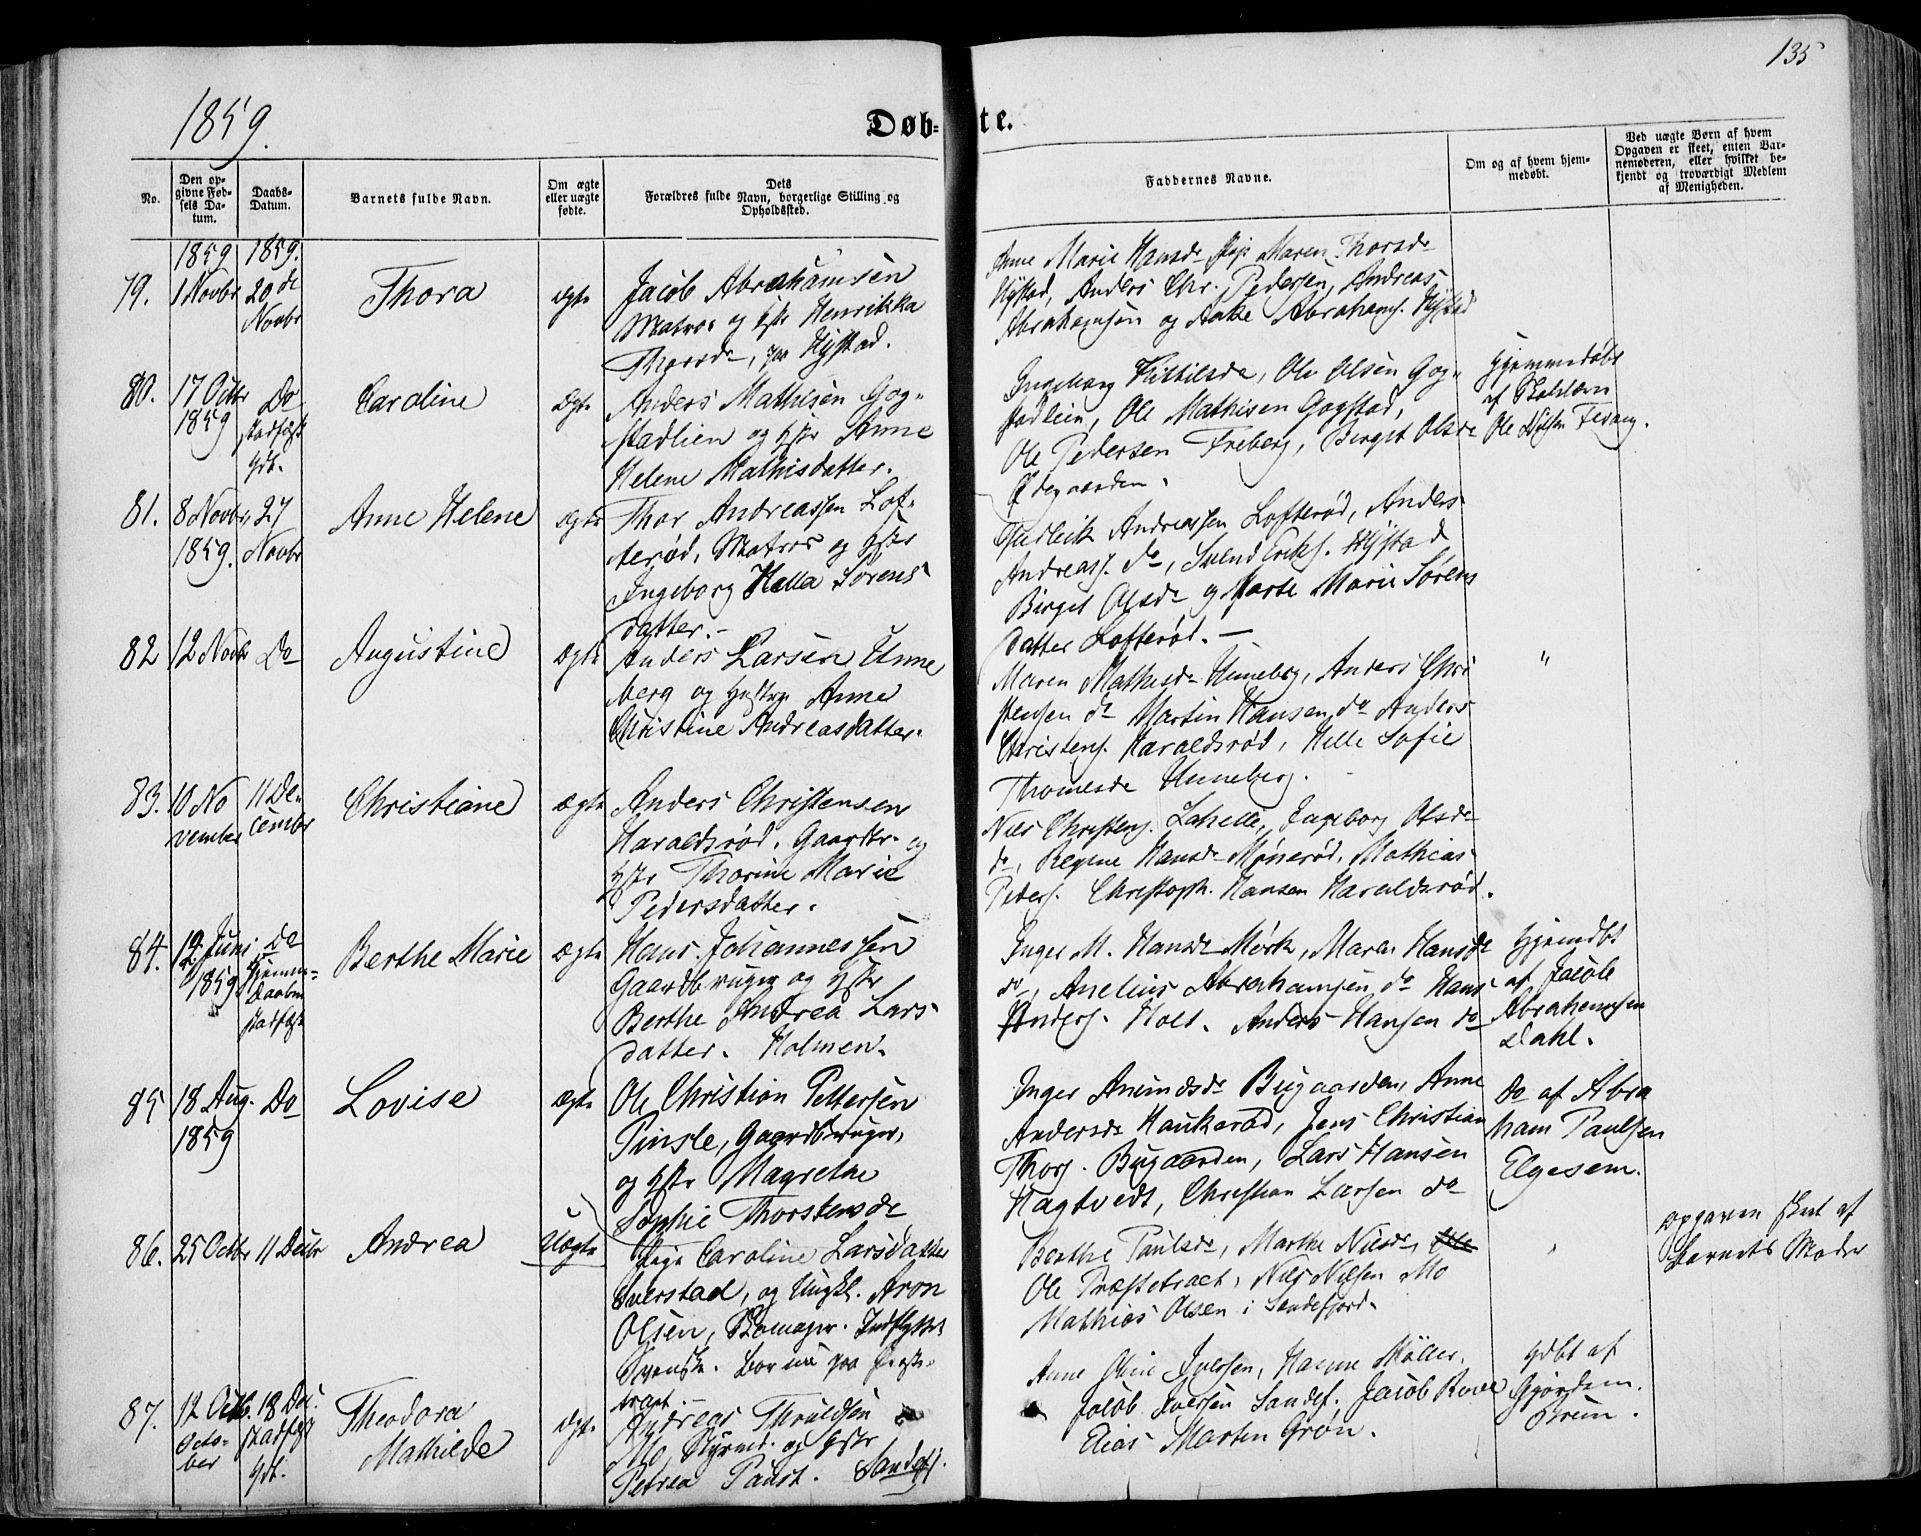 135
1859.
Døb=
te.
No.
Den op-
givne Fød-
sels Da-
tum.
Daabs-
Datum.
Barnets fulde Navn.
Om ægte
eller uægte
fødte.
Dets
Forældres fulde Navn, borgerlige Stilling og
Opholdssted.
Faddernes Navne.
Om og af hvem hjem-
medøbt.
Ved uægte Børn af hvem
Opgaven er skeet, enten Bar-
nemoderen, eller hvilket be-
kjendt og troværdigt Medlem
af Menigheden.
79.
1859
1 Novbr
1859.
20 de
Novbr
Thora
ægte
Jacob Abrahamsen
Matros og Hstr Henrikka
Thorsdr, paa Hystad.
Anne Marie Hansdr Pige Maren Thorsdr
Hystad, Anders Chr. Pedersen, Andreas
Abrahamsen og Aake Abrahams. Hystad
80.
17 Octbr
1859
Do
stadfæst
hdt.
Caroline
ægte
Anders Mathisen Gog-
stadlien og Hstr Anne
Helene Mathisdatter.
Ingeborg Kittilsdr, Ole Olsen Gog-
stadlien, Ole Mathisen Gogstad,
Ole Pedersen Freberg, Birgit Olsdr
Ødegaarden.
Hjemmedøbt
af
Ole Nilsen Fevang.
81.
8 Novbr,
1859.
27
Novbr
Anne Helene
ægte
Thor Andreassen Lof-
terød, Matros og Hstr
Ingeborg Hella Sørens
datter.-
Gudleik Andreassen Lofterød, Anders
Andreass. do, Svend Eriks. Hystad
Birgit Olsdr og Marte Marie Sørens
datter Lofterød. -
82
12 Novbr
Do
Augustine
ægte
Anders Larsen Unne
berg og Hustru Anne
Christine Andreasdatter.
Maren Mathisdr Unneberg, Anders Chri
stensen do Martin Hansen do Anders
Christens. Haraldsrød, Helle Sofie
Thomesdr Unneberg.
"
83.
10 No
vember
11 De-
cembr
Christiane
ægte
Anders Christensen
Haraldsrød. Gaardbr. og
Hstr Thorine Marie
Pedersdatter.
Nils Christens. Lahelle, Ingeborg Olsdr
do, Regine Hansdr Mønerød, Mathias
Peders. Christoph. Hansen Haraldsrød.
84.
12 Juni
1859
do
Hjemme-
daaben
stadfæst
Berthe Marie
ægte
Hans Johannessen
Gaardbruger og Hstr
Berthe Andrea Lars
datter. Holmen.
Inger M. Hansdr Mørk, Maren Hansdr
do, Anelius Abrahamsen do Hans
Anders. Holt. Anders Hansen do
Hjemdbt
af Jacob
Abrahamsen
Dahl.
85
18 Aug.
1859
Do
Lovise
ægte
Ole Christian Pettersen
Pinsle, Gaardbruger,
og Hstr Magrethe
Sophie Thorstensdr
Inger Amundsdr Bugaarden, Anne
Andersdr Haukerød, Jens Christian
Thors. Bugaarden, Lars Hansen
Hagtvedt, Christian Larsen do
Do af Abra
ham Paulsen
Elgesem.
86.
25 Octbr
11 Decbr
Andrea
Uægte
Pige Caroline Larsdatter
Sverstad, og Ungk. Aron
Olsen, Skomager. Indflyttet
Svenske. Bor nu paa Præste-
tract.-
Berthe Paulsdr, Marthe Nilsdr, Ole
Ole Præstetract, Nils Nilsen Mo
Mathias Olsen i Sandefjord.
Opgaven skeet af
Barnets Moder
87.
12 Octb.
Octo-
ber
18 Dec.
stadfæst
hdt.
Theodora
Mathilde
ægte
Andreas Thruldsen
Mo Styrmd. og Hstr
Petrea Paust. Sandefj.
Anne Oline Iversen, Hanne Møller,
Jacob Iversen Sandef. Jacob
Elias Marten Grøn.
hdbt af
Gjordem.
Bruun.